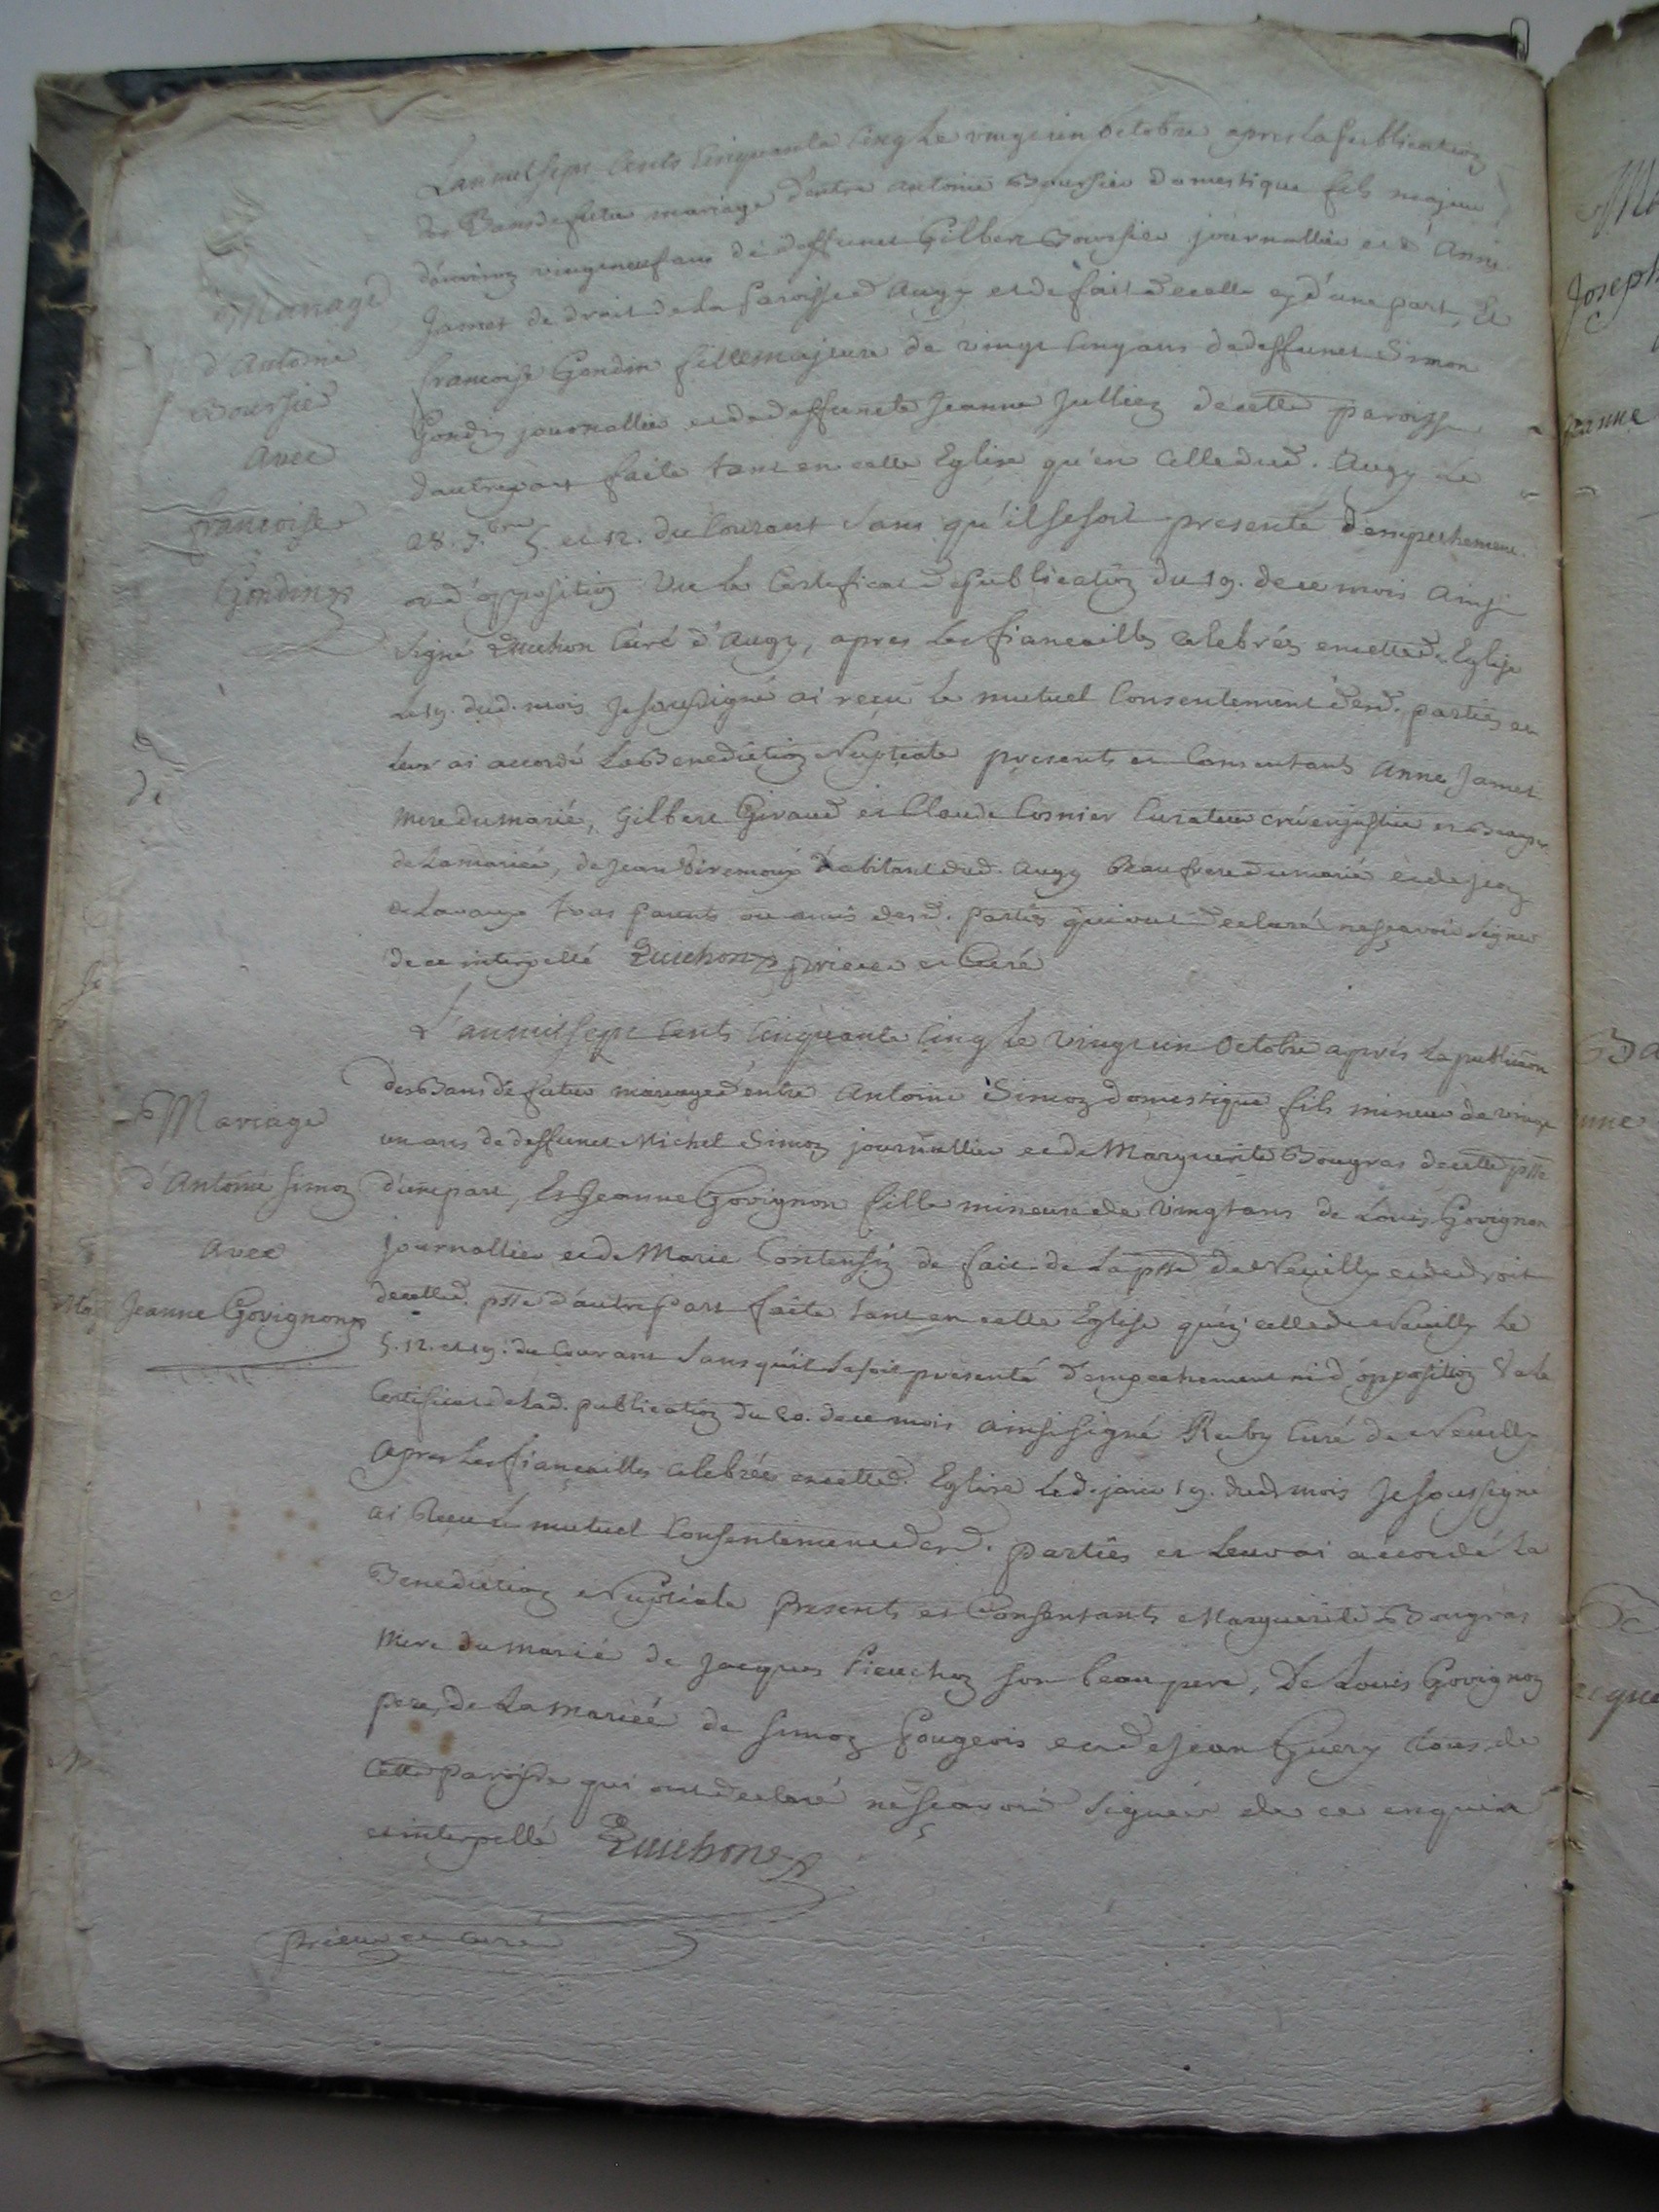 L'an mil sept cents cinquante cinq le vingt un octobre apres la publication
des Bans de futur mariage d'entre antoine Boursier domestique fils majeur
d'environ vingt neuf ans de deffunct Gilbert Boursier journallier et d'Anne
Jamet de droit de la paroisse d'Augy et de fait de celle cy d'une part, Et
francoise Gondin fille majeure de vingt cinq ans de deffunct Simon
Gondin journallier et de deffuncte Jeanne Jullien de cette paroisse
d'autre part faite tant en cette Eglise qu'en celle dud. Augy le
28. 7.bre 5. et 12. du Courant sans qu'il se soit presenté d'empechement
ou d'opposition Vu le Certificat de publication du 19. de ce mois ainsi
signé Curé d'Augy, apres les fiancailles celebrées en cetted. Eglise
le 19. dud. mois Je soussigné ai reçu le mutuel Consentement desd. parties et
leur ai accordé la Benediction Nuptiale presents et Consentants Anne Jamet
mere du marié, Gilbert Giraud et Claude Cosnier Curateur créé en justice
de la mariée, de Jean habitant dud. Augy Beau frere du marié et de Jean
Delavaux tous parents ou amis desd. parties qui ont declaré ne sçavoir signer
de ce interpellé Guichon prieur et Curé
Mariage
d'Antoine
Boursier
Avec
francoise
Gondin
L'an mil sept cents cinquante cinq le vingt un octobre après la publicaon
des Bans de futur mariage d'entre Antoine Simon domestique fils mineur de vingt
un ans de deffunct Michel Simon journallier et de Marguerite Bougras de cette psse
d'une part, Et Jeanne Govignon fille mineure de vingt ans de Louis Govignon
journallier et de Marie de fait de la psse de Neuilly et de droit
de cetted. psse d'autre part faite tant en cette Eglise qu'en celle de Neuilly le
5. 12. et 19. du Courant sans qu'il se soit presenté d'empechement ni d'opposition Vu le
Certificat de lad. publication du 20. de ce mois ainsi signé Ruby Curé de Neuilly
Apres les fiancailles celebrées en cetted. Eglise led. jour 19. dud. mois Je soussigné
ai Reçu le mutuel Consentement desd. parties et leur ai accordé la
Benediction Nuptiale presents et Consentants Marguerite Bougras
mere du marié de Jacques Pieuchon son beau pere, De Louis Govignon
pere de la mariée de Simon Fougerois et de Jean Guery tous de
Cette paroisse qui ont declaré ne sçavoir signer de ce enquis
et interpellé Guichon
prieur et curé
Mariage
d'Antoine Simon
Avec
Jeanne Govignon
Joseph
Jeanne